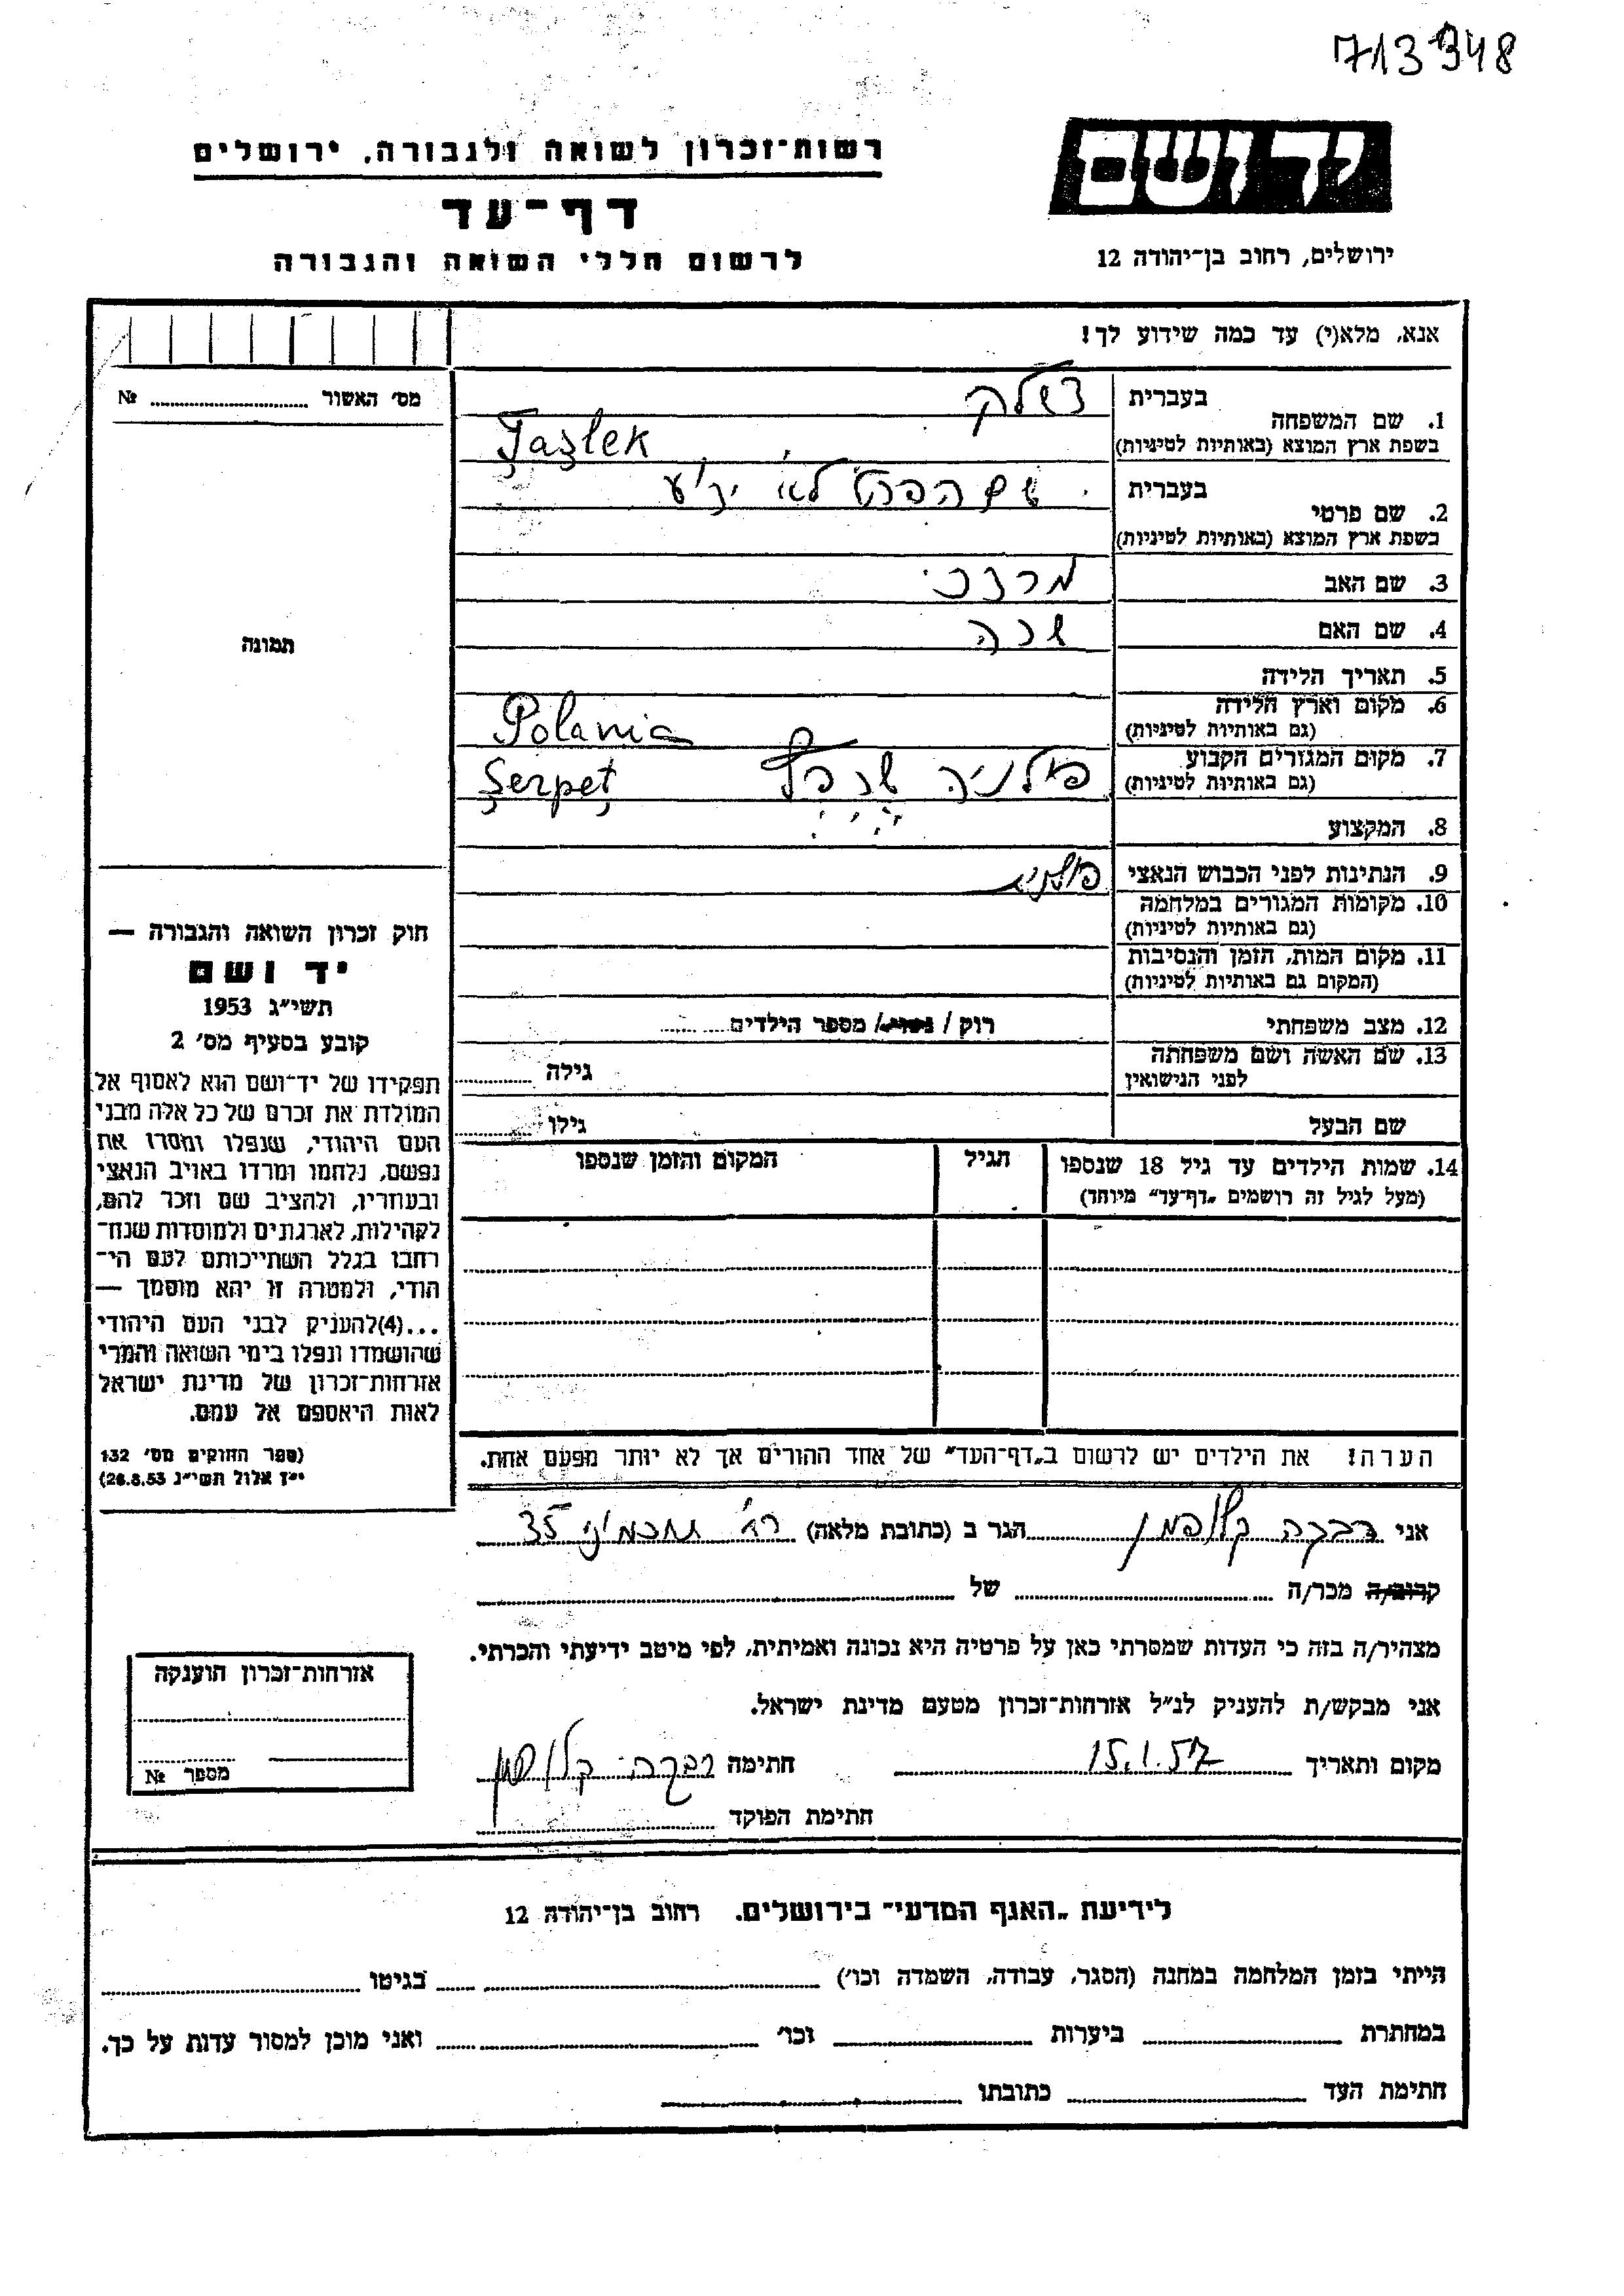 713948
רשות־זכרון לשואה ולגבורה, ירושלים
יד ושם
דף־עד
לרשום חללי השואה והגבורה
ירושלים, רחוב בן־יהודה 12
אנא, מלא(י) עד כמה שידוע לך!
מס׳ האשור № 
1. שם המשפחה
בעברית
בשפת ארץ המוצא (באותיות לטיניות)
Jaşlek
2. שם פרטי
בעברית שם הפרטי לא ידוע
בשפת ארץ המוצא (באותיות לטיניות)
3. שם האב מרדכי
4. שם האם שרה
תמונה
5. תאריך הלידה
6. מקום וארץ הלידה
(גם באותיות לטיניות) Polania
7. מקום המגורים הקבוע
(גם באותיות לטיניות) פולניה שרפץ Şerpeţ
8. המקצוע
9. הנתינות לפני הכבוש הנאצי
10. מקומות המגורים במלחמה
(גם באותיות לטיניות)
11. מקום המות, הזמן והנסיבות
(המקום גם באותיות לטיניות)
12. מצב משפחתי רוק / נשוי / מספר הילדים
13. שם האשה ושם משפחתה
לפני הנישואין גילה
שם הבעל גילו
14. שמות הילדים עד גיל 18 שנספו
(מעל לגיל זה רושמים „דף־עד״ מיוחד)
הגיל
המקום והזמן שנספו
חוק זכרון השואה והגבורה —
יד ושם
תשי״ג 1953
קובע בסעיף מס׳ 2
תפקידו של יד־ושם הוא לאסוף אל
המולדת את זכרם של כל אלה מבני
העם היהודי, שנפלו ומסרו את
נפשם, נלחמו ומרדו באויב הנאצי
ובעוזריו, ולהציב שם וזכר להם,
לקהילות, לארגונים ולמוסדות שנח־
רחבו בגלל השתייכותם לעם הי־
הודי, ולמטרה זו יהא מוסמך —
...(4)להעניק לבני העם היהודי
שהושמדו ונפלו בימי השואה והמרי
אזרחות־זכרון של מדינת ישראל
לאות היאספם אל עמם.
(ספר החוקים מס׳ 132
י״ז אלול תשי״ג 28.8.53)
הערה! את הילדים יש לרשום ב„דף־העד״ של אחד ההורים אך לא יותר מפעם אחת.
אני רבקה קלופמן הגר ב (כתובת מלאה) רח׳ תחכמוני 35
קרוב/ה מכר/ה של
מצהיר/ה בזה כי העדות שמסרתי כאן על פרטיה היא נכונה ואמיתית, לפי מיטב ידיעתי והכרתי.
אני מבקש/ת להעניק לנ״ל אזרחות־זכרון מטעם מדינת ישראל.
מקום ותאריך 15.1.57 חתימה רבקה קלופמן
חתימת הפוקד
אזרחות־זכרון הוענקה
מספר №
לידיעת „האגף המדעי״ בירושלים. רחוב בן־יהודה 12
הייתי בזמן המלחמה במחנה (הסגר, עבודה, השמדה וכו׳) בגיטו
במחתרת ביערות וכו׳ ואני מוכן למסור עדות על כך.
חתימת העד כתובתו